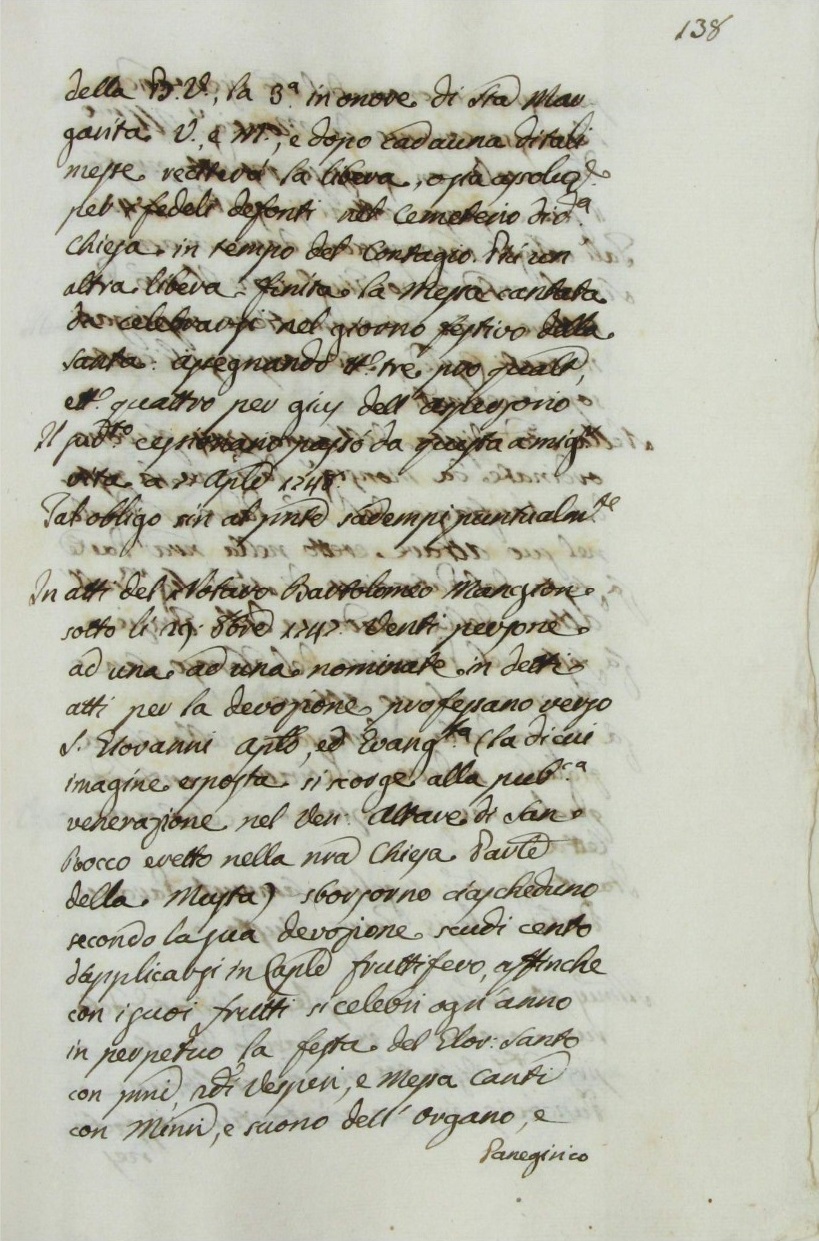 138
della B. V., la 3.ª in onore di Sta Mar
garita V., e M., e dopo cadauna di tali
messe reciterà la libera, o sia assoluz.e
per i fedeli defonti nel Cemeterio di d.ª
Chiesa in tempo del Contagio. Più un
altra libera finita la Messa cantata
da celebrarsi nel giorno festivo della
santa. assegnando tt.i trè pro qualt,
e tt.i quattro per gius dell'aspersorio
Il sud.tto cessionario passò da questa a migl.r
vita a 21 Aple 1748.
Tal obligo sin al pnte s'adempi puntualm.te
In atti del Notaro Bartolomeo Mangione
sotto li 29: 8bre 1747. Venti persone
ad una ad una nominate in detti
atti per la devozione professano verso
S. Giovanni Aplo, ed Evang.sta (la di cui
imagine esposta si scorge alla pub.ca
venerazione nel Ven: Altare di San
Rocco eretto nella nra Chiesa Parle
della Musta) sborsorno ciascheduno
secondo la sua devozione scudi cento
d'applicarsi in Caple fruttifero, affinche
con i suoi frutti si celebri ogn'anno
in perpetuo la festa del Glor: Santo
con pmi, 2di Vesperi, e Messa Canti
con Minri, e suono dell'Organo, e
Panegirico